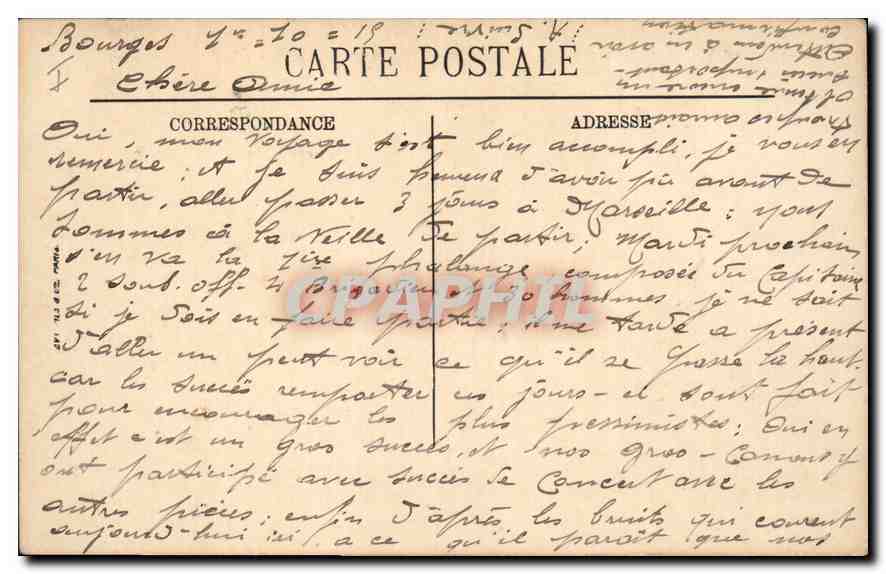 Bourges 1er-10-15 : A Suivre :
CARTE POSTALE
I
Chère Amie
CORRESPONDANCE
ADRESSE
Oui, mon voyage s'est bien accompli, je vous en
remercie; & je suis heureux d'avoir pû avant de
partir, aller passer 3 jours à Marseille; nous
sommes à la Veille de partir; Mardi prochain
s'en va la 1ière phalange, composée du Capitaine
2 sous-off- 4 Brigadiers et 30 hommes, je ne sait
si je dois en faire partie; il me tarde a présent
d'aller un peut voir ce qu'il se passe la haut-
car les succés remporter ces jours-ci sont fait
pour encourager les plus pessimistes; Oui en
effet c'est un gros succès, et nos gros-Canons y
ont participé avec succès de Concert avec les
autres pièces; enfin d'après les bruits qui courent
aujourd'hui ici, a ce qu'il parait que nos
troupes auraient
encore un
aussi important-
Attendons à en avoir
confirmation
CPAPHIL
PARIS